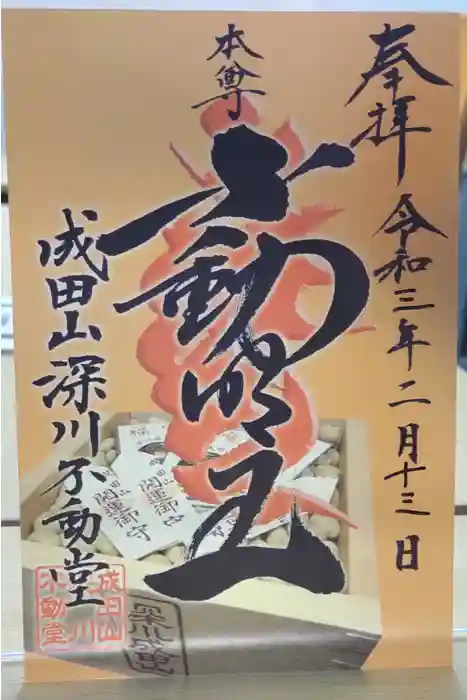 奉拝
令和三年二月十三日
本尊
不動明王
成田山深川不動堂
開運御守
開運御守
成田山
深川
不動堂
深川成田山